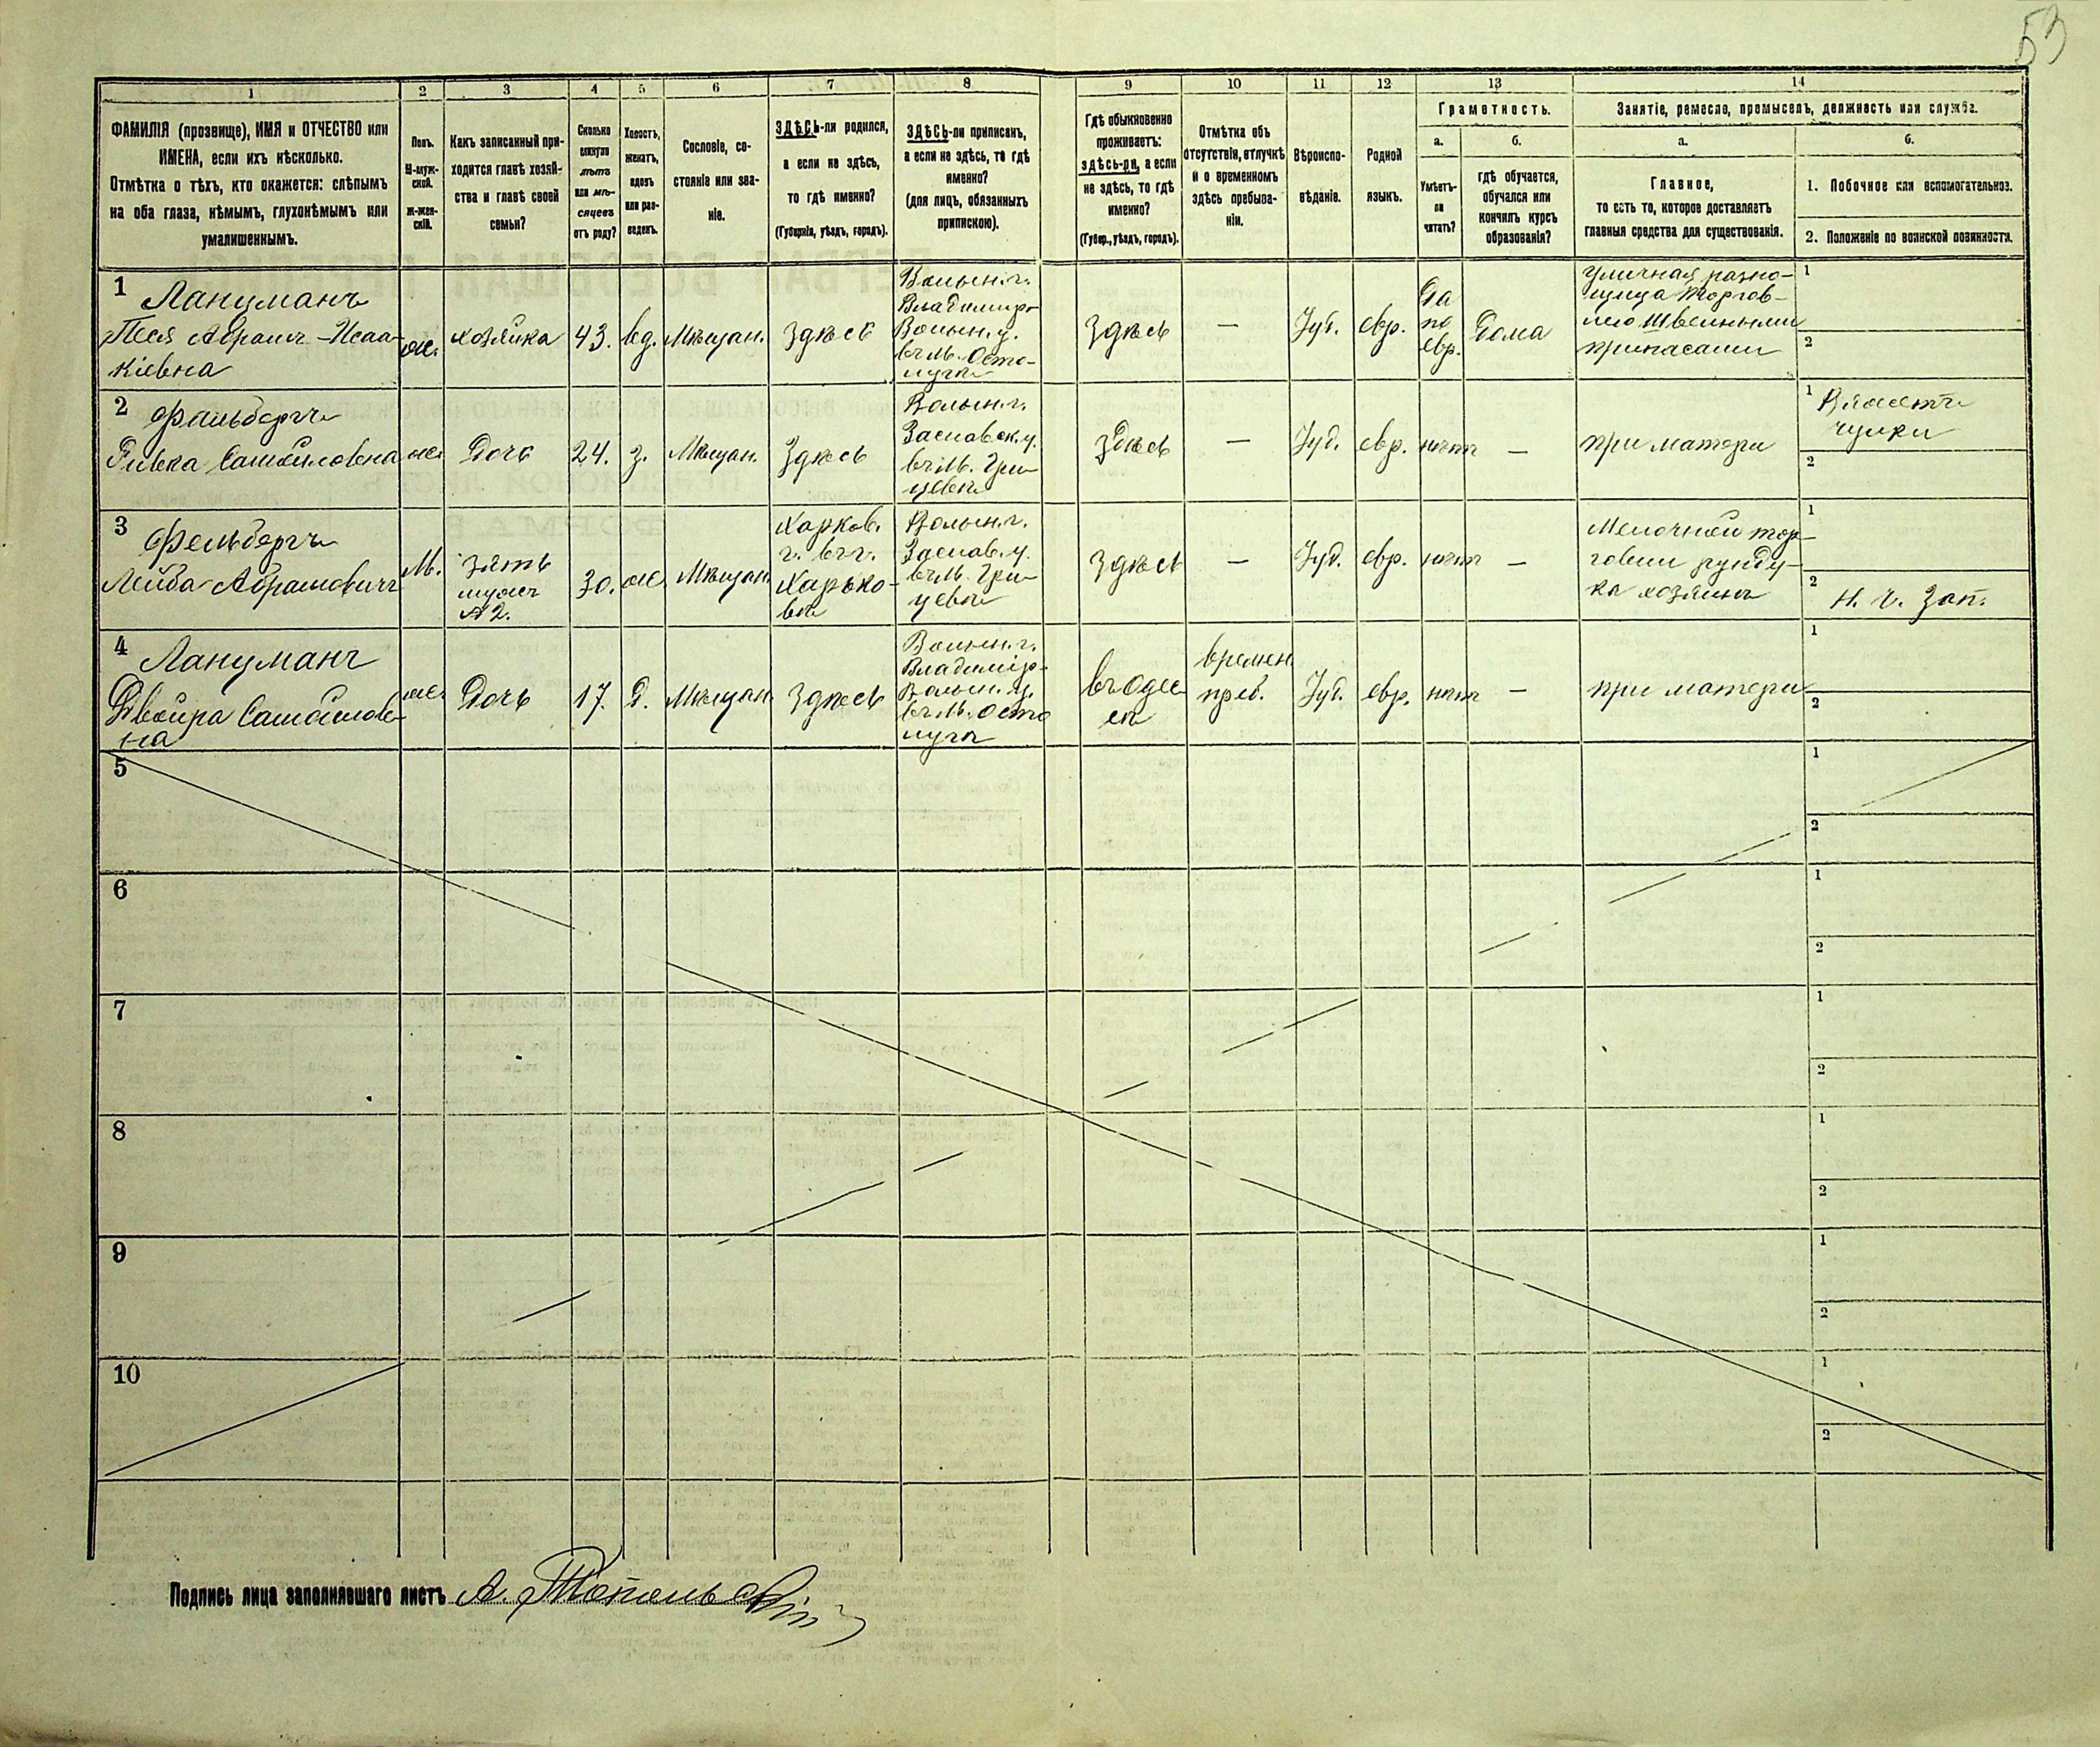 53
1
2
3
4
5
6
7
8
9
10
11
12
13
14
ФАМИЛІЯ (прозвище), ИМЯ и ОТЧЕСТВО или
ИМЕНА, если ихъ нѣсколько.
Отмѣтка о тѣхъ, кто окажется: слѣпымъ
на оба глаза, нѣмымъ, глухонѣмымъ или
умалишеннымъ.
Полъ.
М-муж-
ской.
Ж-жен-
скій.
Какъ записанный при-
ходится главѣ хозяй-
ства и главѣ своей
семьи?
Сколько
минуло
лѣтъ
или мѣ-
сяцевъ
отъ роду?
Холостъ,
женатъ,
вдовъ
или раз-
веденъ.
Сословіе, со-
стояніе или зва-
ніе.
ЗДѢСЬ-ли родился,
а если не здѣсь,
то гдѣ именно?
(Губернія, уѣздъ, городъ).
ЗДѢСЬ-ли приписанъ,
а если не здѣсь, то гдѣ
именно?
(для лицъ, обязанныхъ
припискою).
Гдѣ обыкновенно
проживаетъ:
здѣсь-ли, а если
не здѣсь, то гдѣ
именно?
(Губер., уѣздъ, городъ).
Отмѣтка объ
отсутствіи, отлучкѣ
и о временномъ
здѣсь пребыва-
ніи.
Вѣроиспо-
вѣданіе.
Родной
языкъ.
Грамотность.
а.
Умѣетъ-
ли
читать?
б.
гдѣ обучается,
обучался или
кончилъ курсъ
образованія?
Занятіе, ремесло, промыселъ, должность или служба.
а.
Главное,
то есть то, которое доставляетъ
главныя средства для существованія.
б.
1. Побочное или вспомогательное.
2. Положеніе по воинской повинности.
1
Ланцманъ
Песя Абрамъ-Исаа-
кіевна
ж.
хозяйка
43.
вд.
Мѣщан.
Здѣсь
Волын. г.
Владимир-
Волын. у.
въ м.
Здѣсь
—
Іуд.
евр.
Да
по
евр.
Дома
Уличная разно-
щица торгов-
лею швейными
припасами
1
2
2
Фельбергъ
Ривка Самойловна
ж.
Дочь
24.
з.
Мѣщан.
Здѣсь
Волын. г.
Заславск. у.
въ м. Гри-
цевѣ
здѣсь
—
Іуд.
евр.
нѣтъ
—
при матери
1
чулки
2
3
Фельбергъ
Лейба Абрамовичъ
М.
зять
мужъ
№ 2.
30.
ж.
Мѣщан.
Харьков.
г. въ г.
Харько-
вѣ
Волын. г.
Заслав. у.
въ м. Гри-
цевѣ
Здѣсь
—
Іуд.
евр.
нѣтъ
—
Мелочной тор-
говли рунду-
ка хозяинъ
1
2
4
Ланцманъ
Двойра Самойлов-
на
ж.
Дочь
17.
д.
Мѣщан.
Здѣсь
Волын. г.
Владимір-
Волын. у.
въ м.
въ Одес-
сѣ
времен.
преб.
Іуд.
евр.
нѣтъ
—
при матери
1
2
5
1
2
6
1
2
7
1
2
8
1
2
9
1
2
10
1
2
Подпись лица заполнявшаго листъ